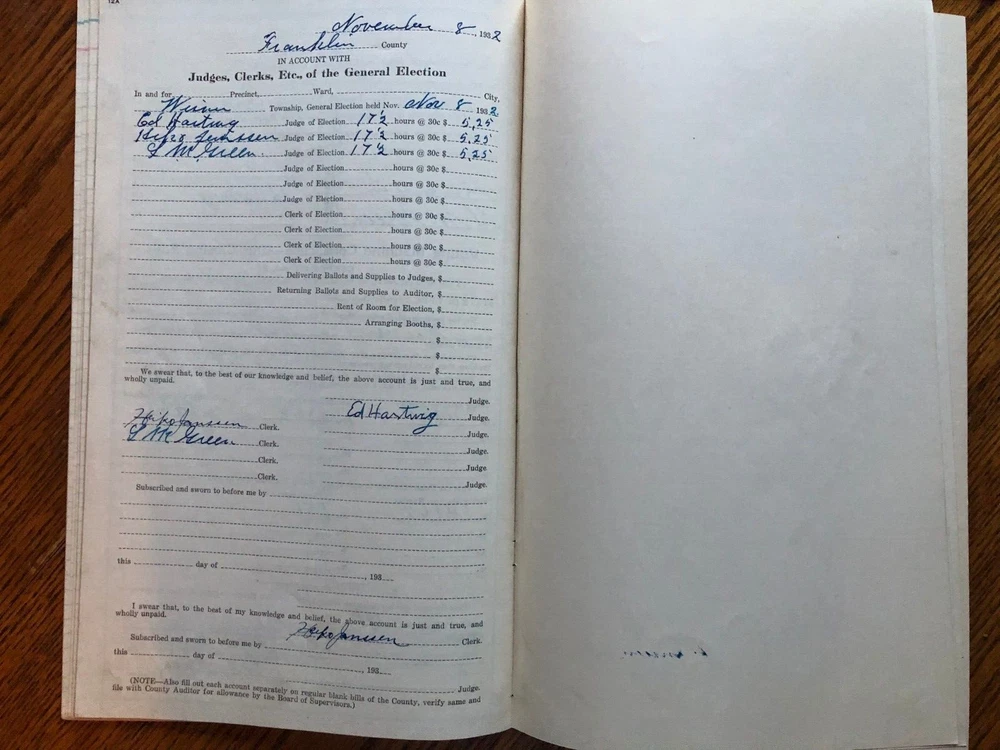 12A
November 8, 1932
Franklin County
IN ACCOUNT WITH
Judges, Clerks, Etc., of the General Election
In and for Precinct, Ward, City,
Township, General Election held Nov. Nov. 8 1932
Ed Hartwig Judge of Election 17½ hours @ 30c $ 5.25
Judge of Election 17½ hours @ 30c $ 5.25
L McGreen Judge of Election 17½ hours @ 30c $ 5.25
Judge of Election hours @ 30c $
Judge of Election hours @ 30c $
Judge of Election hours @ 30c $
Clerk of Election hours @ 30c $
Clerk of Election hours @ 30c $
Clerk of Election hours @ 30c $
Clerk of Election hours @ 30c $
Delivering Ballots and Supplies to Judges, $
Returning Ballots and Supplies to Auditor, $
Rent of Room for Election, $
Arranging Booths, $
$
$
$
We swear that, to the best of our knowledge and belief, the above account is just and true, and
wholly unpaid.
Judge.
Ed Hartwig Judge.
Heiko Janssen Clerk.
Judge.
L McGreen Clerk.
Judge.
Clerk.
Judge
Clerk.
Judge.
Subscribed and sworn to before me by
this day of , 193
I swear that, to the best of my knowledge and belief, the above account is just and true, and
wholly unpaid.
Heiko Janssen Clerk.
Subscribed and sworn to before me by
this day of , 193
Judge.
(NOTE—Also fill out each account separately on regular blank bills of the County, verify same and
file with County Auditor for allowance by the Board of Supervisors.)